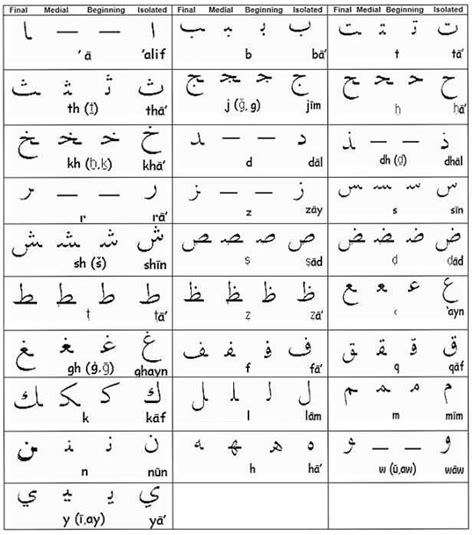 Final Medial Beginning Isolated Final Medial Beginning Isolated Final Medial Beginning Isolated
ـا — — ا ـب ـبـ بـ ب ـت ـتـ تـ ت
’ ā ’alif b bā’ t tā’
ـث ـثـ ثـ ث ـج ـجـ جـ ج ـح ـحـ حـ ح
th (ṯ) thā’ j (ğ, g) jīm ḥ ḥā’
ـخ ـخـ خـ خ ـد — — د ـذ — — ذ
kh (ḫ, ẖ) khā’ d dāl dh (ḏ) dhāl
ـر — — ر ـز — — ز ـس ـسـ سـ س
r rā’ z zāy s sīn
ـش ـشـ شـ ش ـص ـصـ صـ ص ـض ـضـ ضـ ض
sh (š) shīn ṣ ṣād ḍ ḍād
ـط ـطـ طـ ط ـظ ـظـ ظـ ظ ـع ـعـ عـ ع
ṭ ṭā’ ẓ ẓā’ ‘ ‘ayn
ـغ ـغـ غـ غ ـف ـفـ فـ ف ـق ـقـ قـ ق
gh (ġ, ḡ) ghayn f fā’ q qāf
ـك ـكـ كـ ك ـل ـلـ لـ ل ـم ـمـ مـ م
k kāf l lām m mīm
ـن ـنـ نـ ن ـه ـهـ هـ ه ـو — — و
n nūn h hā’ w (ū,aw) wāw
ـي ـيـ يـ ي
y (ī,ay) yā’